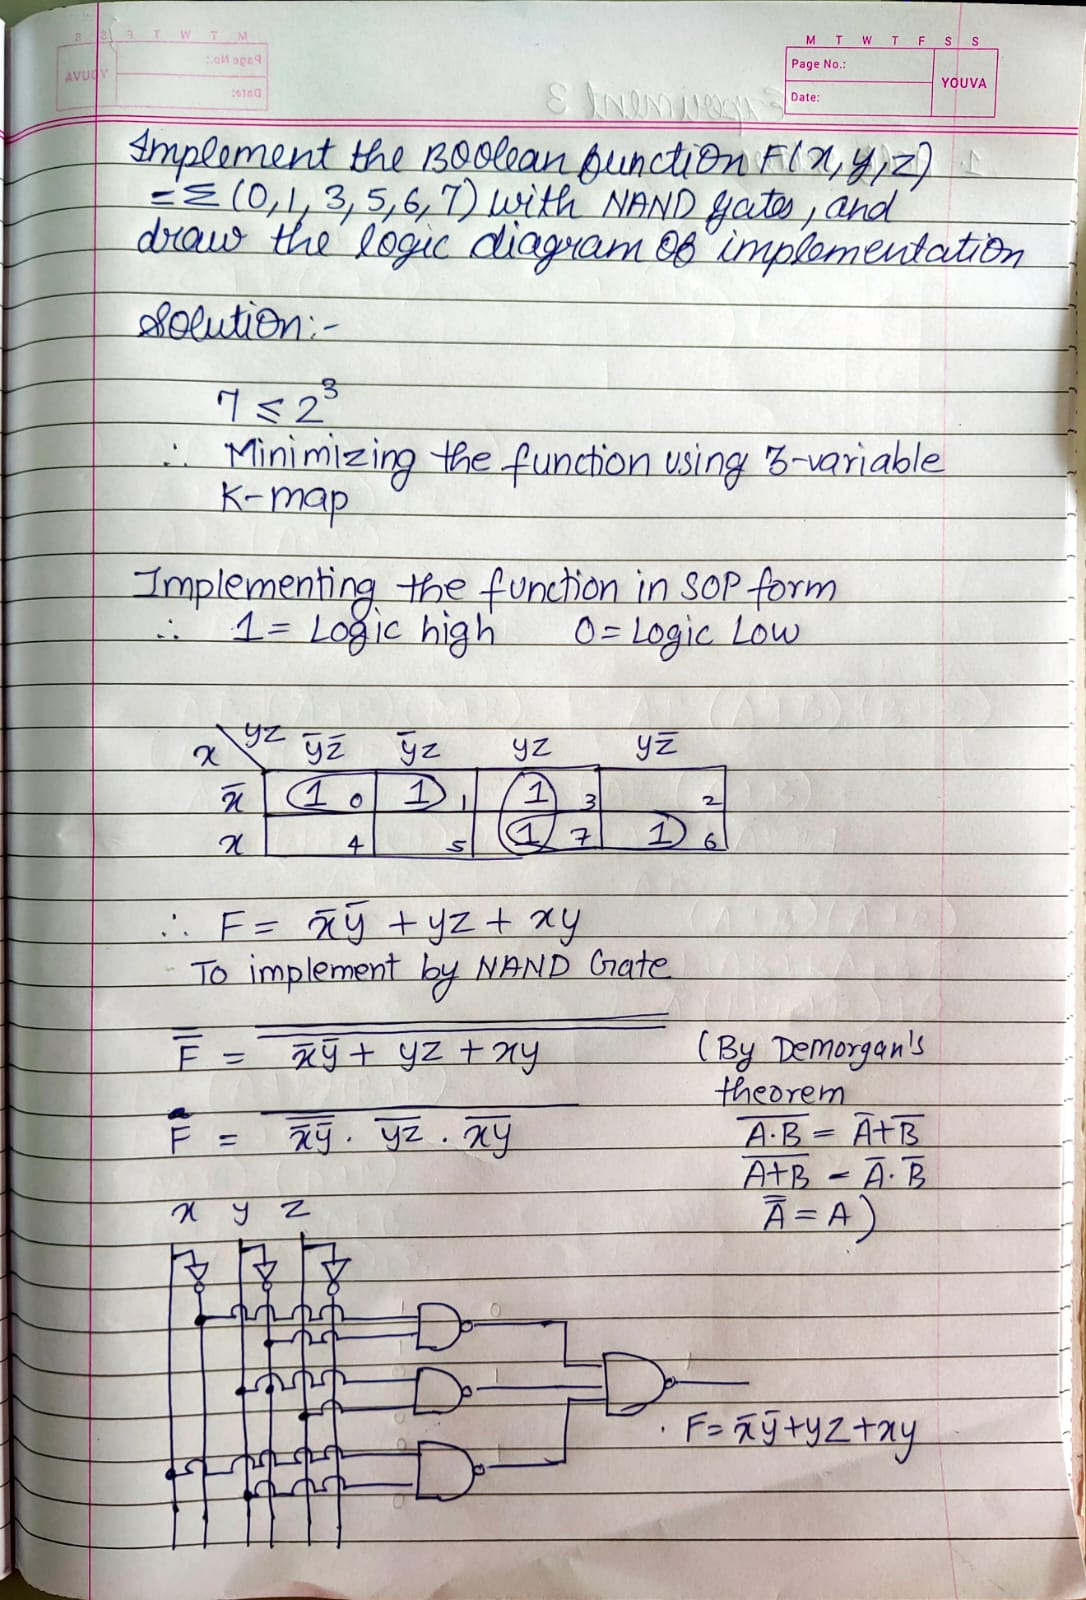 M T W T F S S
Page No.:
YOUVA
Date:
Implement the Boolean function F(x,y,z)
=Σ(0,1,3,5,6,7) with NAND gates, and
draw the logic diagram of implementation
Solution:-
7 ≤ 2³
∴ Minimizing the function using 3-variable
K-map
Implementing the function in SOP form
∴ 1= Logic high 0=Logic Low
x yz y̅z̅ y̅z yz yz̅
x̅ 1 0 1 1 1 3 2
x 4 5 1 7 1 6
∴ F= x̅y̅ + yz + xy
- To implement by NAND Gate
F̿ = x̅y̅ + yz + xy (By Demorgan's
theorem
F = x̅y̅ . yz . xy A·B = A̅+B̅
A+B = A̅·B̅
A̿ = A)
x y z
F= x̅y̅+yz+xy